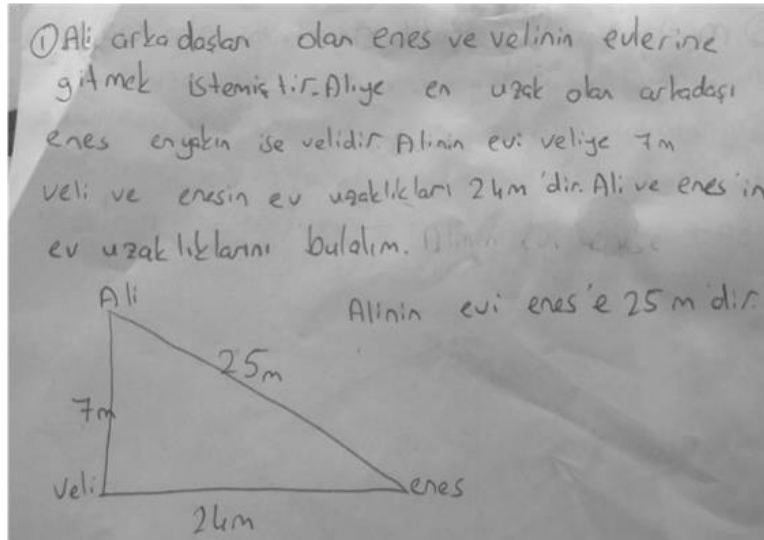 ① Ali arkadaşları olan enes ve velinin evlerine
gitmek istemiştir. Aliye en uzak olan arkadaşı
enes en yakın ise velidir. Alinin evi veliye 7m
veli ve enesin ev uzaklıkları 24m'dir. Ali ve enes'in
ev uzaklıklarını bulalım.
Alinin evi enes'e 25m'dir.
Ali
25m
7m
Veli
enes
24m